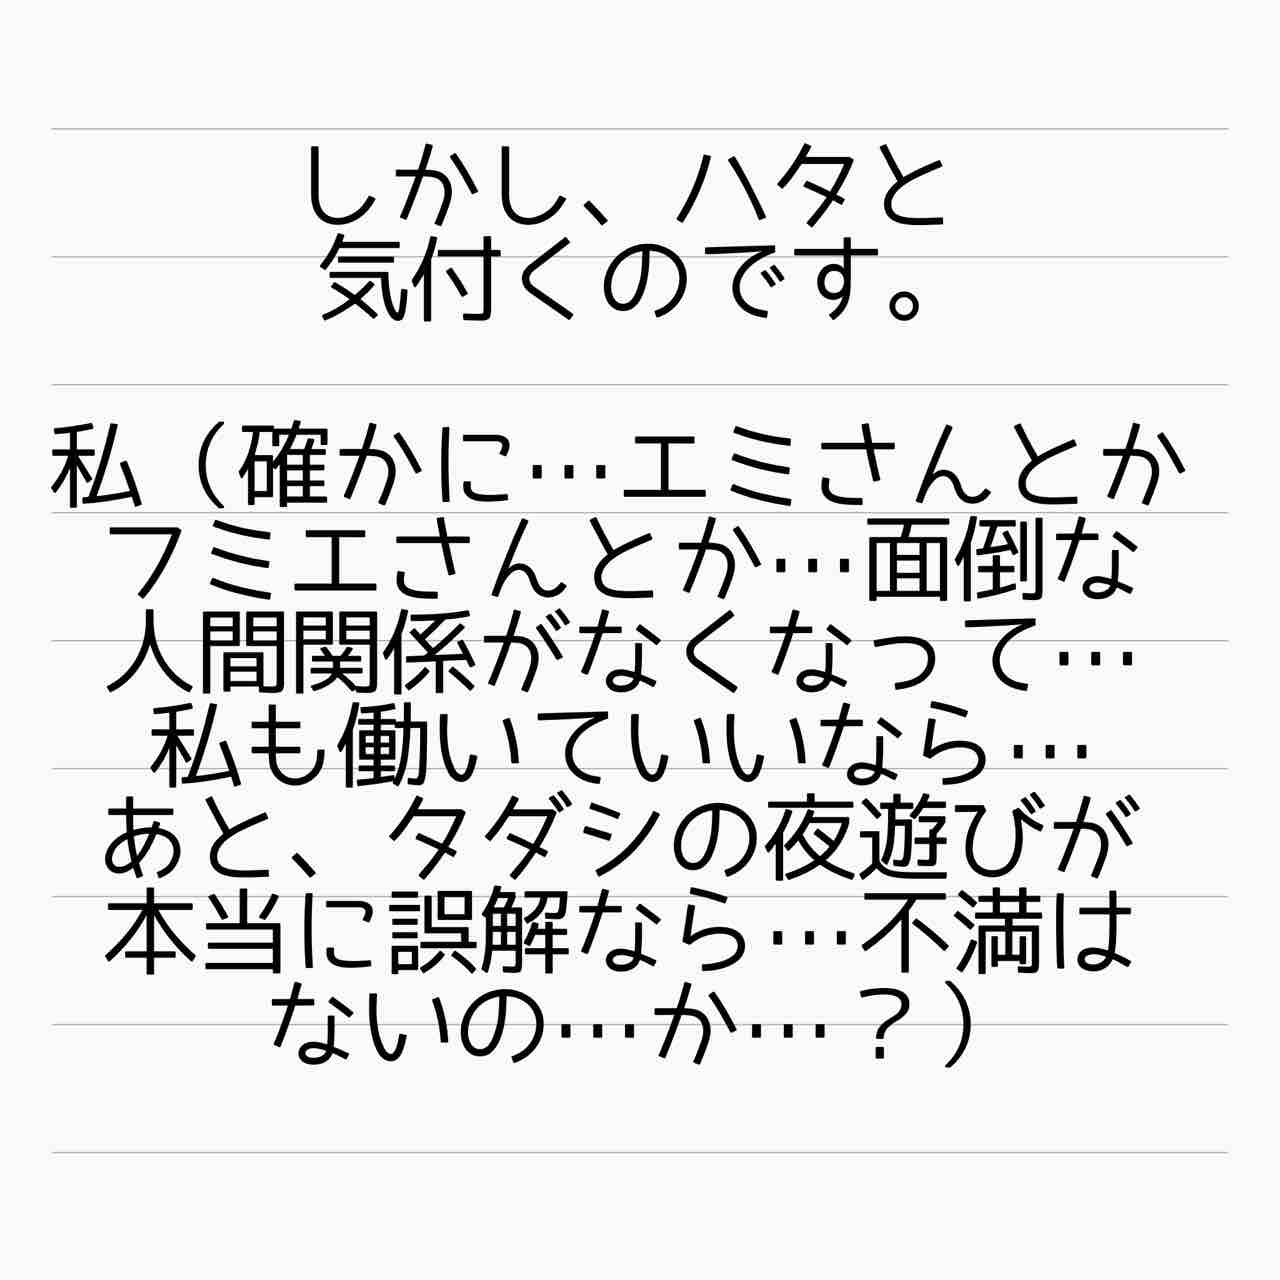 しかし、ハタと
気付くのです。
私（確かに…エミさんとか
フミエさんとか…面倒な
人間関係がなくなって…
私も働いていいなら…
あと、タダシの夜遊びが
本当に誤解なら…不満は
ないの…か…？）